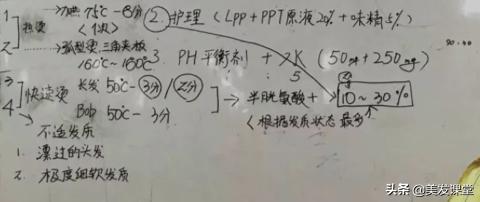 1 热烫 → 加热 75℃-8分
<1次>
② 护理 (LPP+PPT原液20%+味精5%)
2 → 弧型烫 三角夹板
160℃~180℃
3. PH平衡剂 + 水 (50ml+250ml)
5
3 快速烫 长发 50℃-3分/2分
4 Bob 50℃-3分
→ 半胱氨酸+ 10~30%
<根据发质状态 最多
不适发质
1. 漂过的头发
2. 极度细软发质
头条 @美发课堂